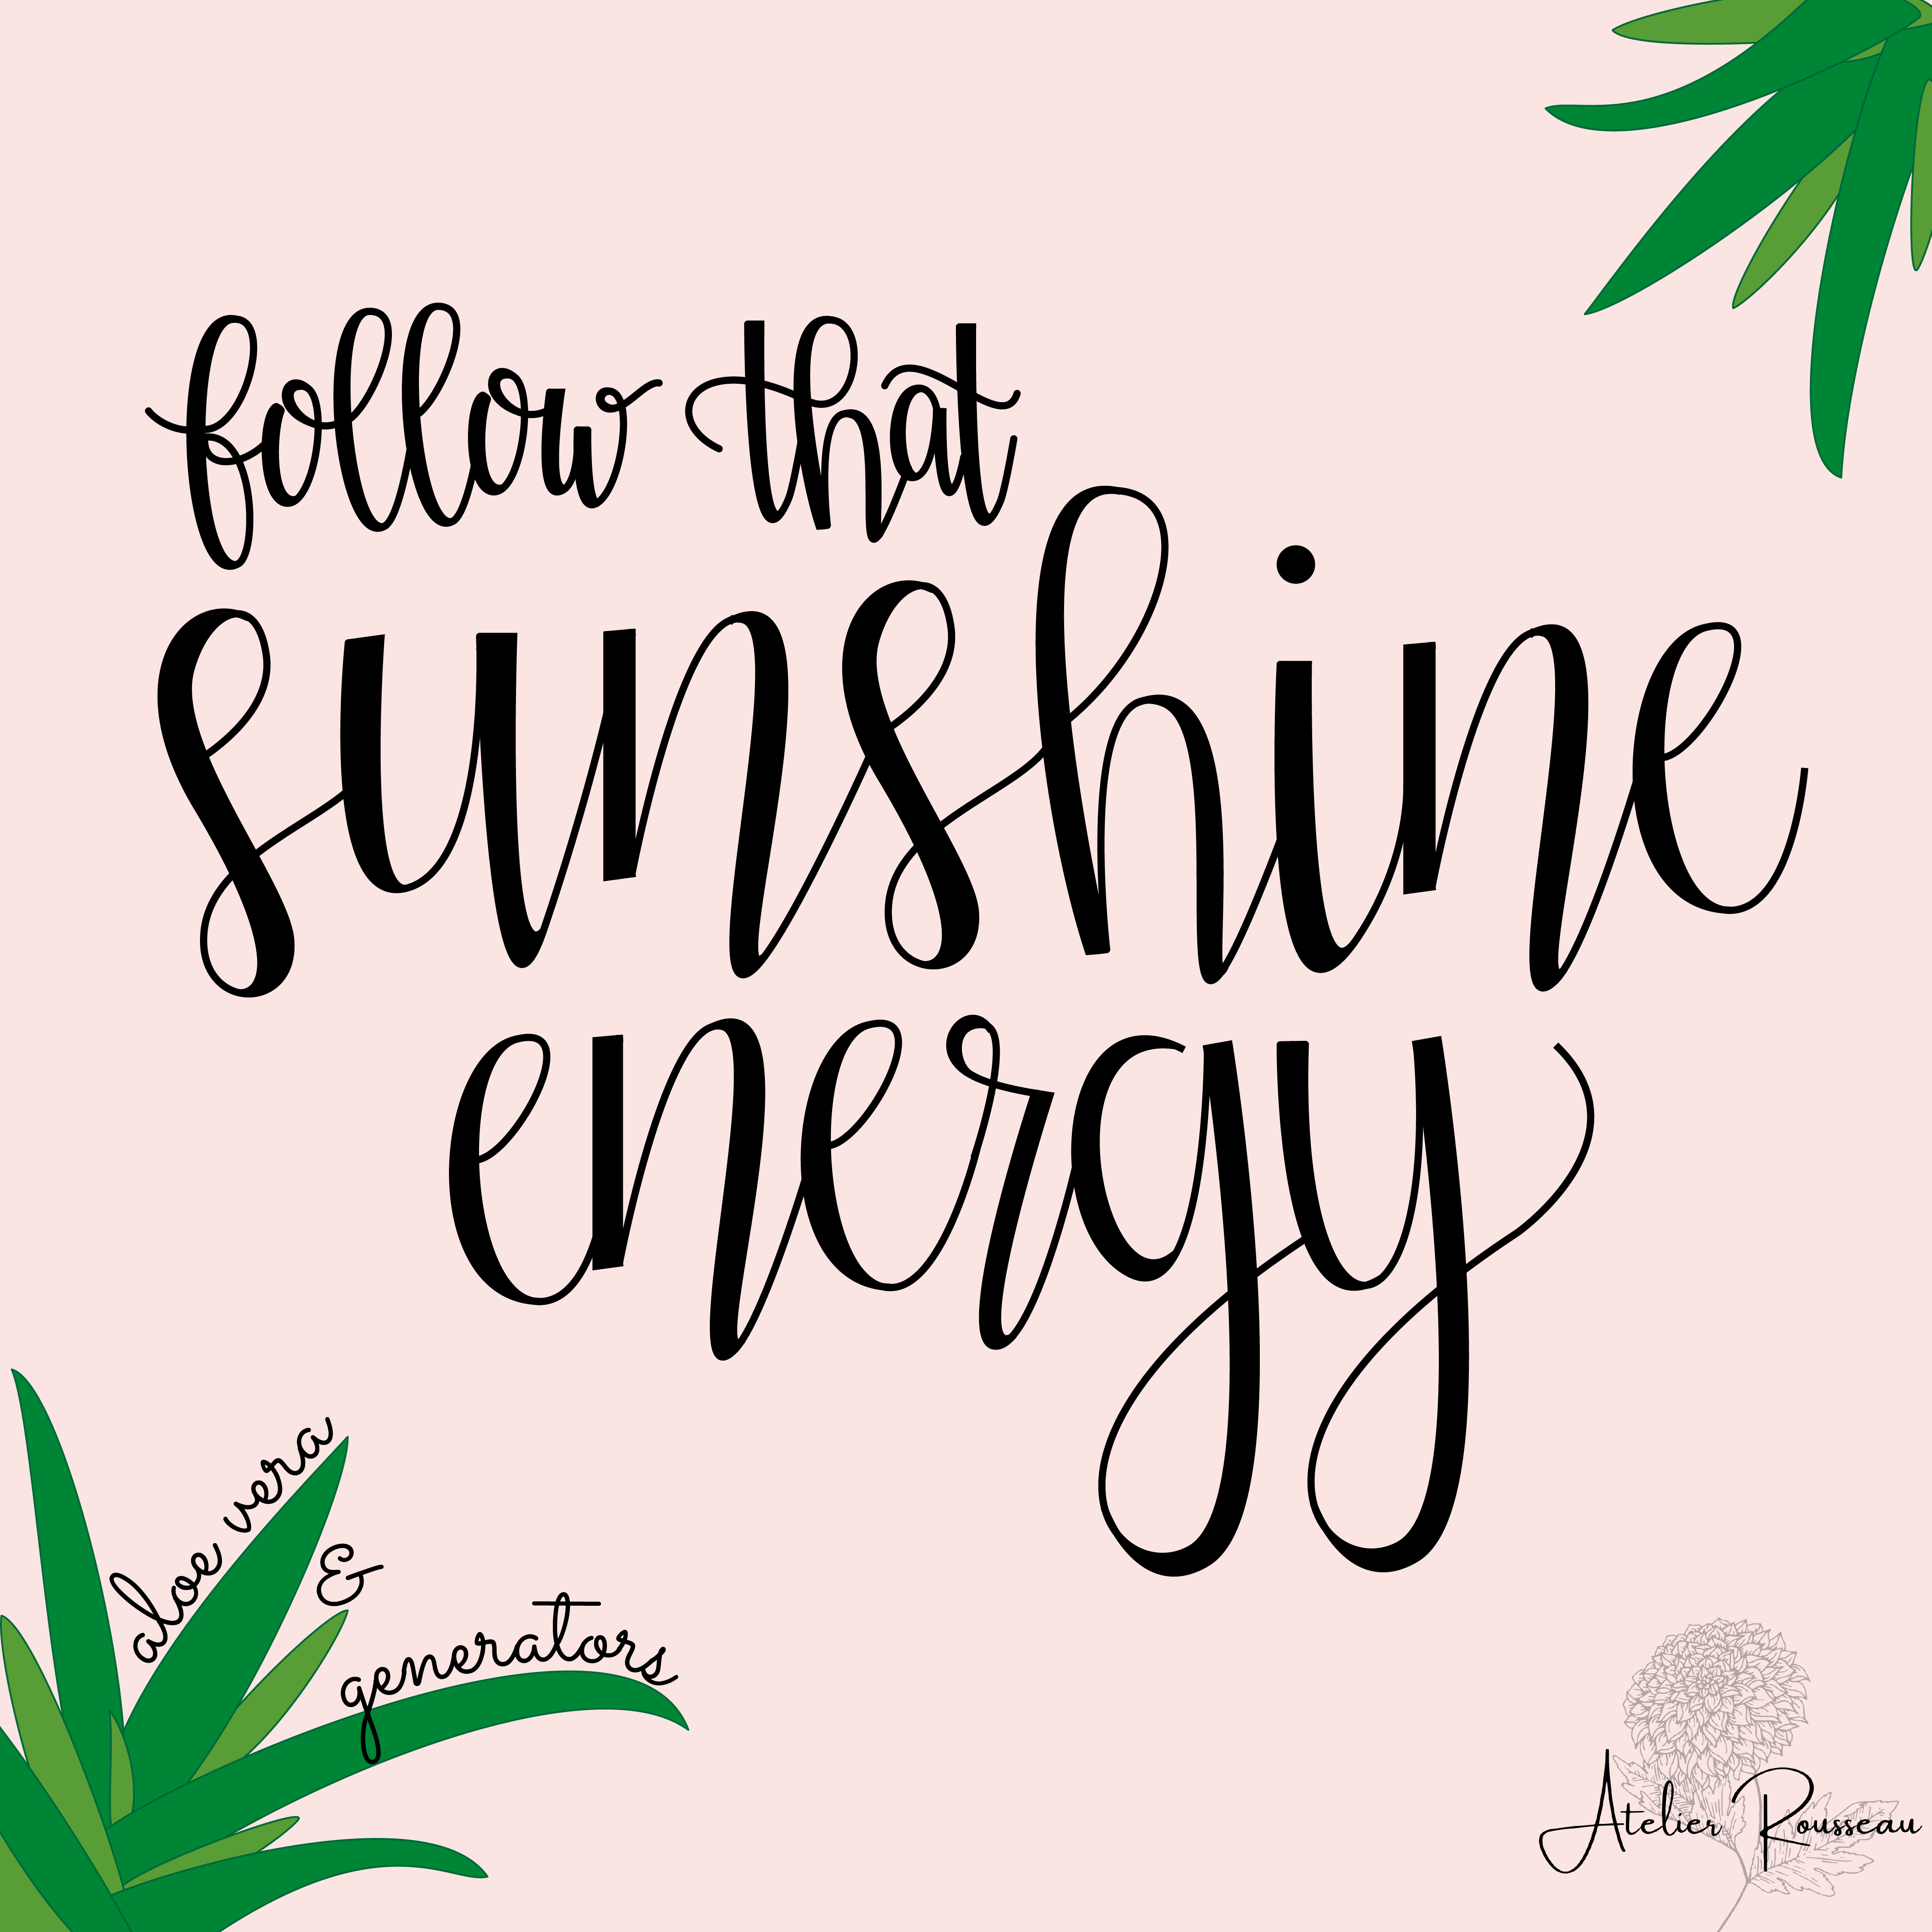 follow that
sunshine
energy
aloe vera
&
generator
Atelier Rousseau